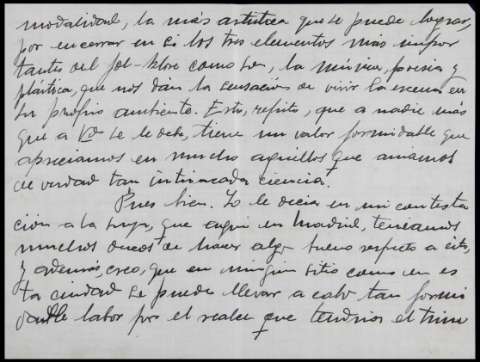 modalidad, la más artística que se puede lograr,
por encerrar en si los tres elementos más impor
tantes del fol-klore como son, la música, poesia y
plástica, que nos dan la sensación de vivir la escena en
su propio ambiente. Esto, repito, que a nadie más
que a Vd se le debe, tiene un valor formidable que
apreciamos en mucho aquellos que amamos
de verdad tan intrincada ciencia.
Pues bien. Yo le decia en mi contesta
ción a la suya, que aqui en Madrid, teniamos
muchos deseos de hacer algo bueno respecto a esto,
y además, creo, que en ningún sitio como en es
ta ciudad se puede llevar a cabo tan formi
dable labor por el realce que tendria el triun